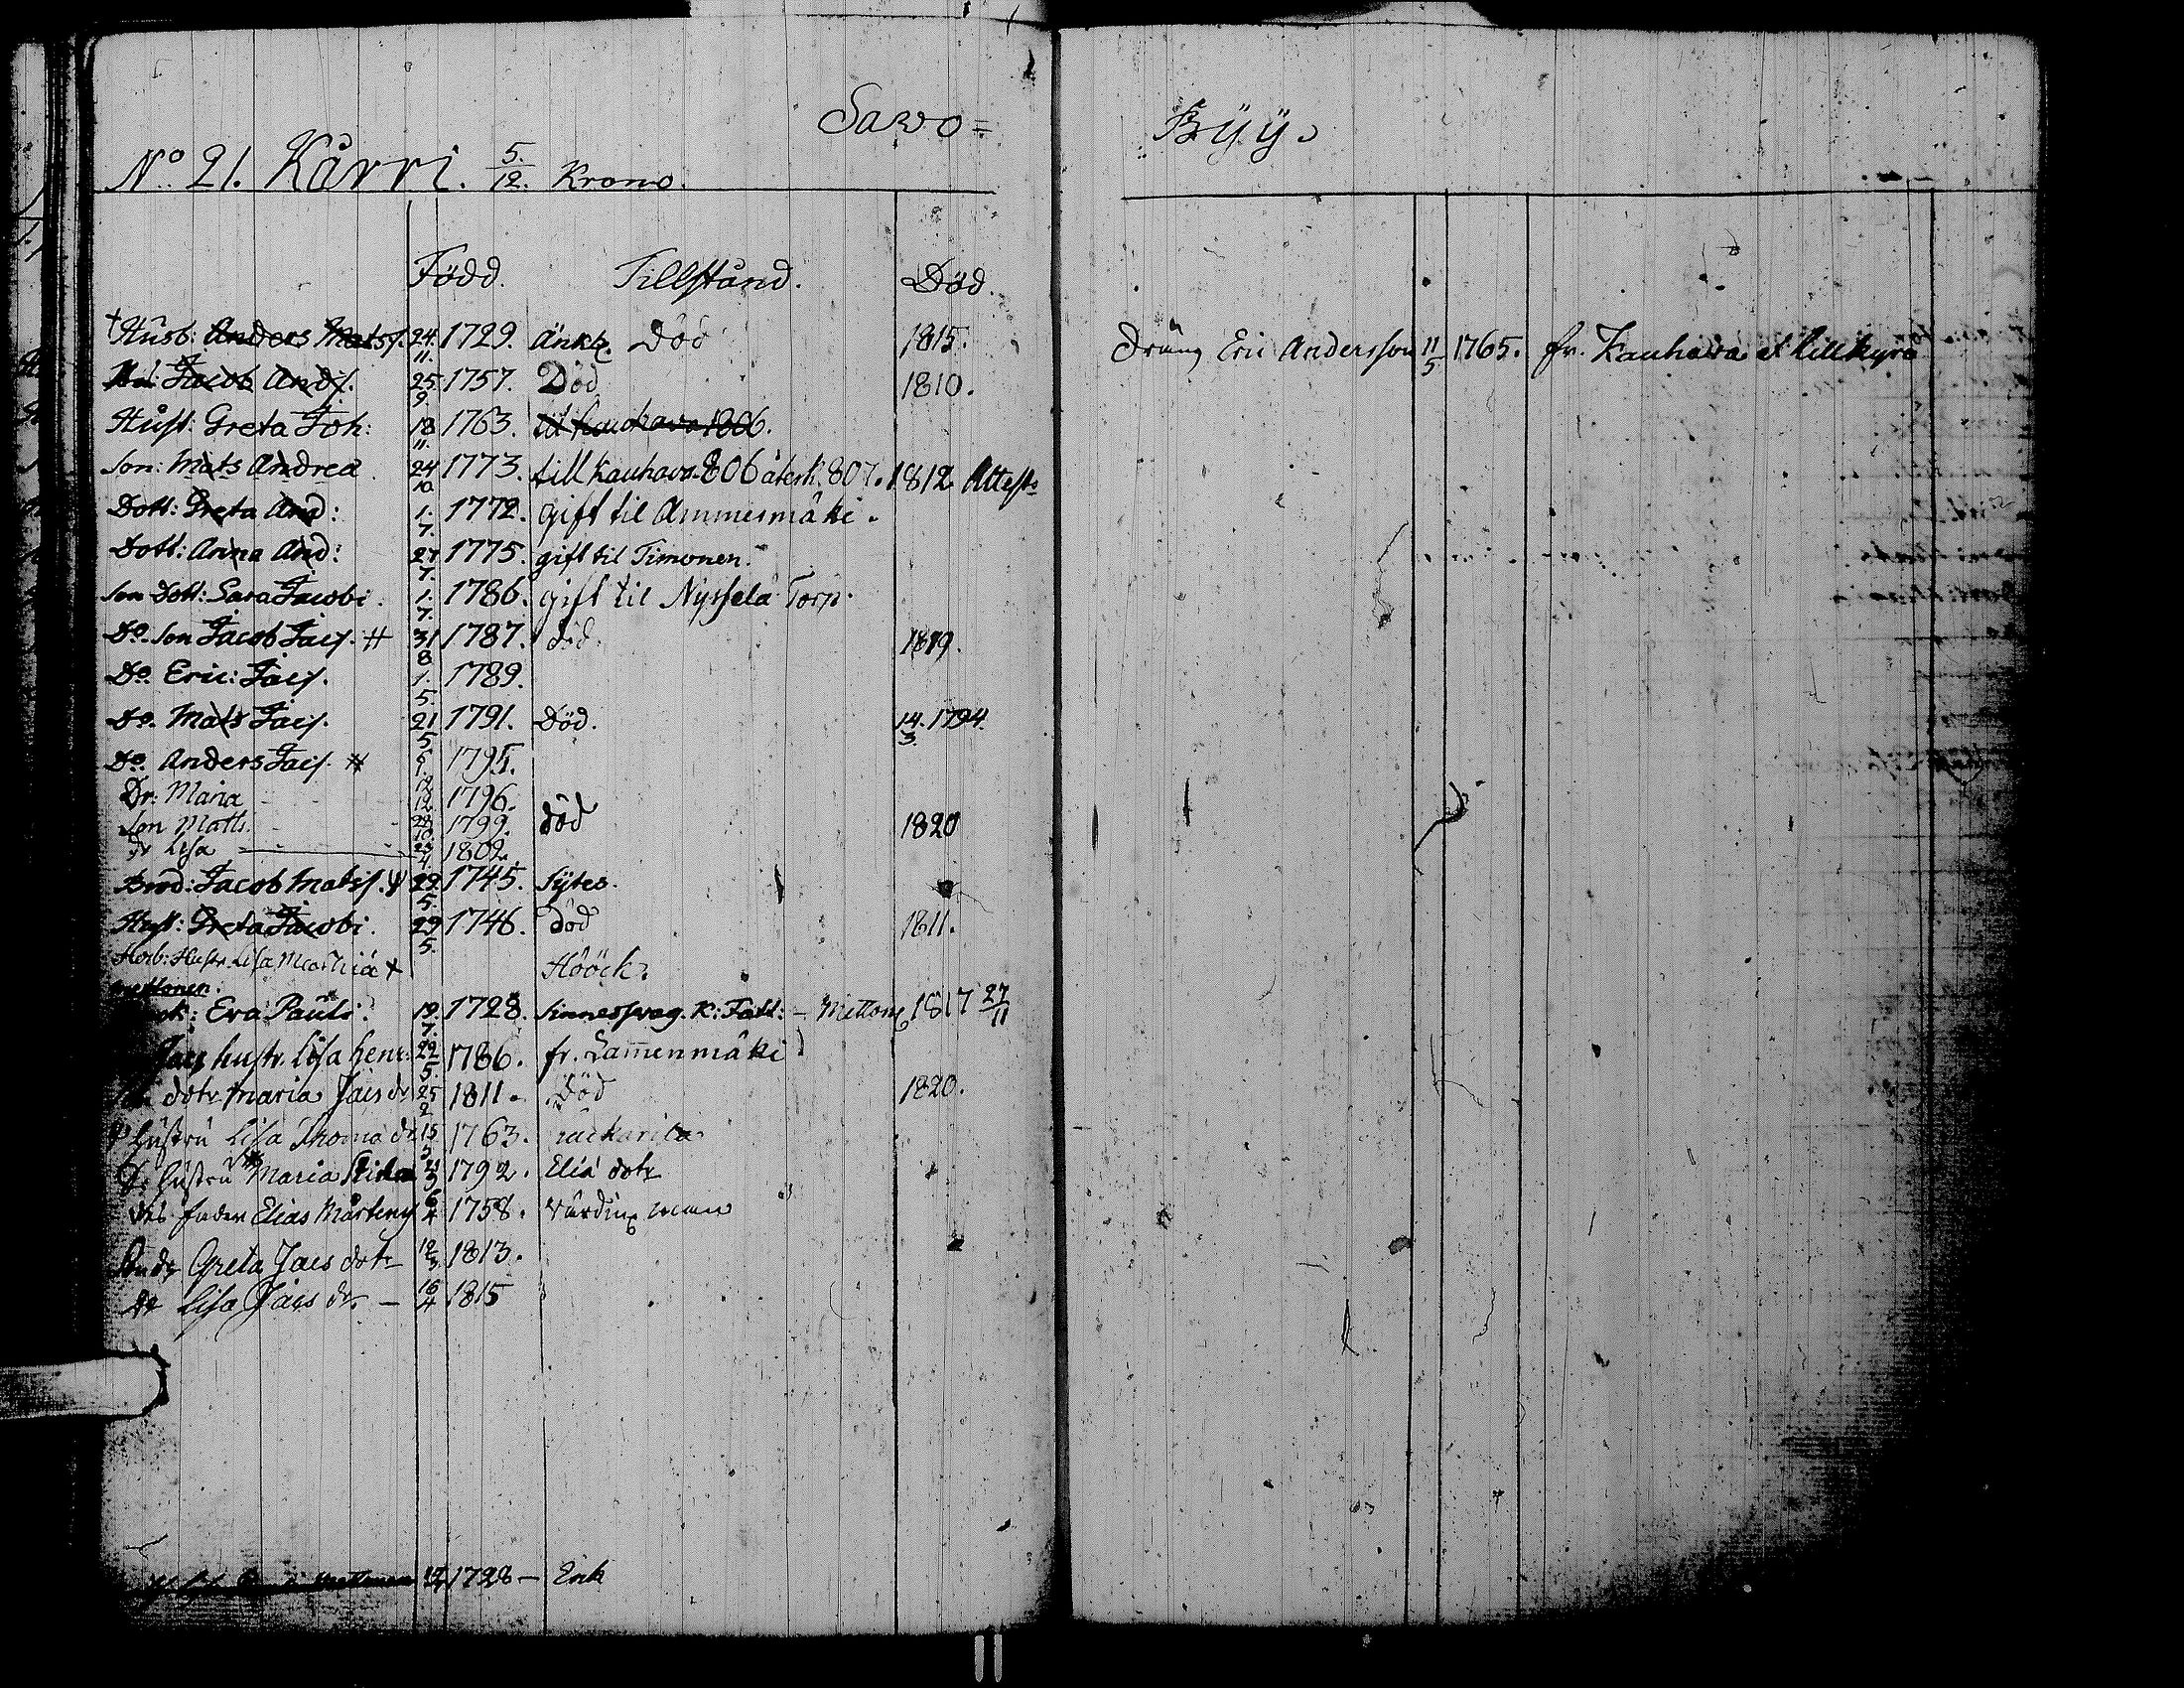 Sawo=
No 21. Kårri. 5./12. Krono.
Född. Tillstånd. Död.
† Husb: Anders Matss. 24./11. 1729. änkl. Död 1815.
Jacob Ands. 25/9. 1757. Död 1810.
Hust: Greta Joh: 18/11. 1763. til Kauhava 1806.
Son: Mats Andreä 24/10 1773. till Kauhava 806 återk. 807. 1812 Attest
Dott: Greta And: 1./7. 1772. gift til Ammesmäki.
Dott: Anna And: 27/7. 1775. gift til Timonen.
Son Dott: Sara Jacobi. 1./7. 1786. gift til Nyssela Torp.
Do Son Jacob Jacs. # 31/8 1787. död. 1819.
Do Eric: Jacs. 1./5. 1789.
Do. Mats Jacs. 21/5 1791. Död. 14./3. 1794.
Do. Anders Jacs. # 1795.
Dr: Maria 12/12 1796.
Son Matts. 28/10. 1799. död 1820
Dr Lisa 23/4. 1802.
Brod: Jacob Matss. 29./5. 1745. Sytes.
Hust: Greta Jacobi. 29/5. 1746. Död 1811.
Hustr. Lisa Hööck.
Mettonen.
Eva Pauli. 19./7. 1728. Sinnessvag. K: Fatt: - Metton 1817 27/11
Jacs hustr. Lisa Henr: 22/5. 1786. fr. Lammenmäki
dotr Maria Jacs dr 25/2 1811. Död 1820.
hustru Lisa Thomæ dr 15 1763.
Dr hustru Maria 1792. Eliæ dotr
Des fader Elias Mårtens 6/4 1758.
Greta Jacs dotr 12/3 1813.
Do Lisa Jacs dr. - 16/4 1815
1728 - Enk
Byÿ.
Dräng Eric Andersson 11/5 1765. fr. Kauhava et Lillkyro